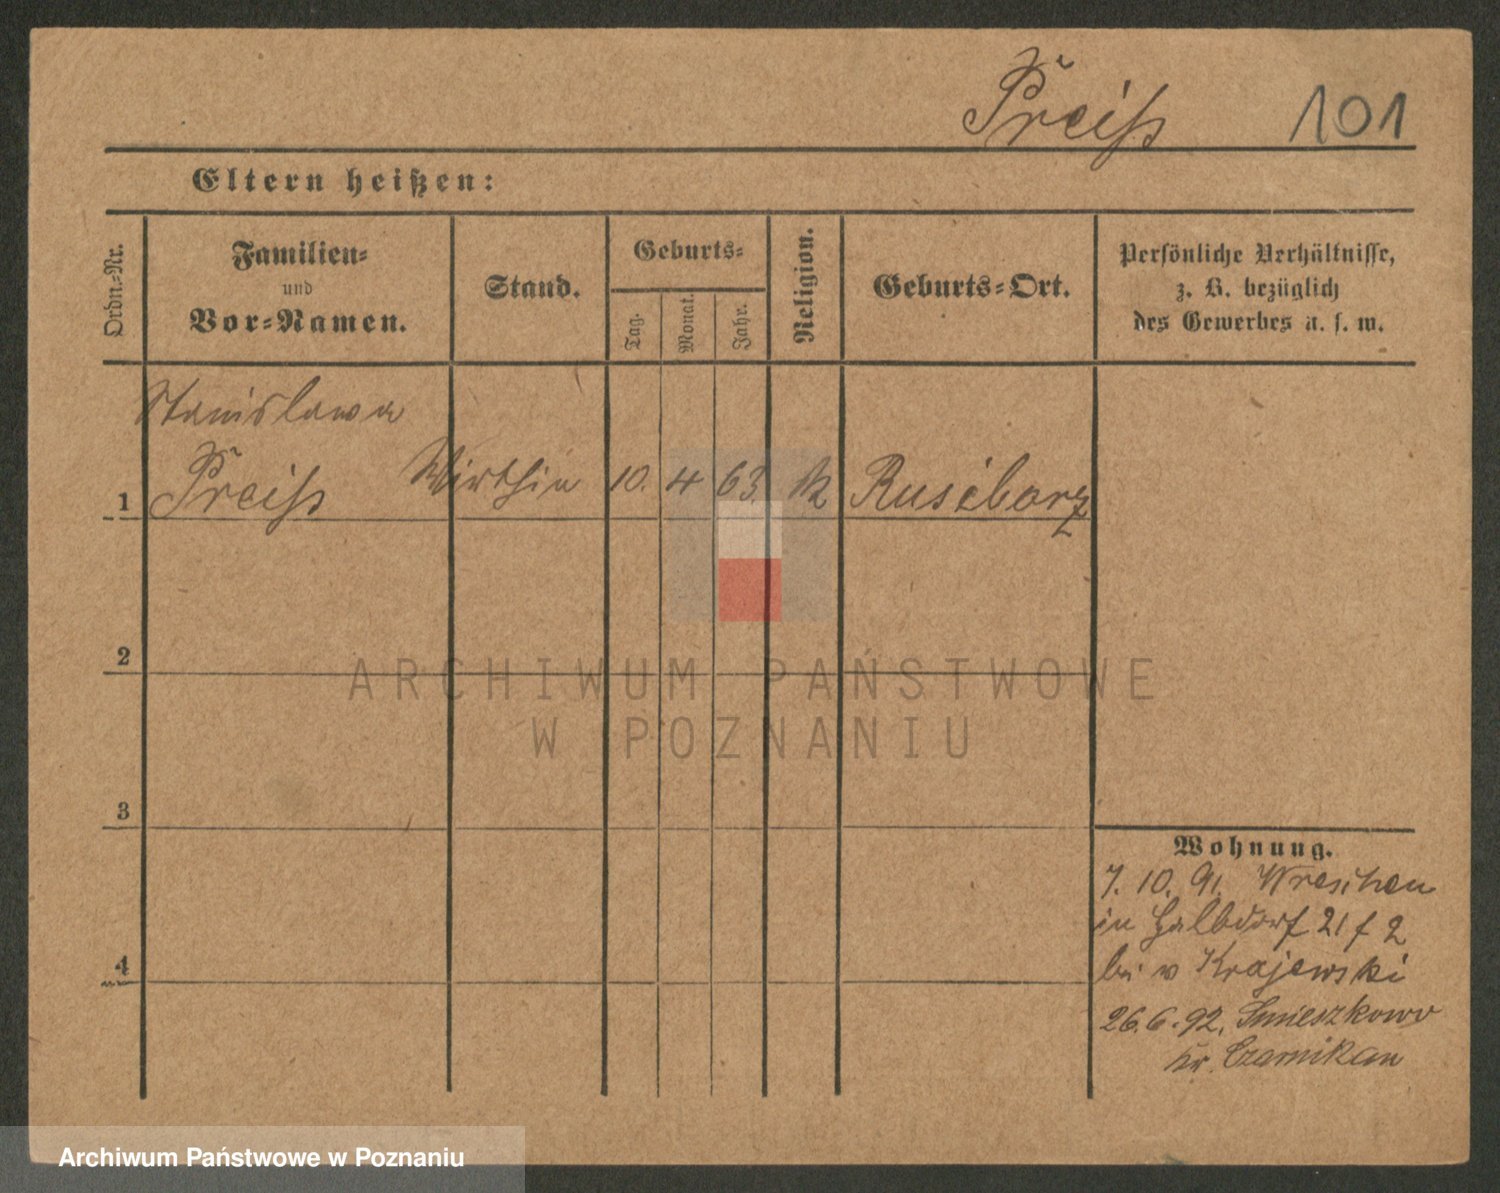 Preiß 101
Eltern heißen:
Ordn.-Nr.
Familien-
und
Vor-Namen.
Stand.
Geburts-
Tag.
Monat.
Jahr.
Religion.
Geburts-Ort.
Persönliche Verhältnisse,
z. B. bezüglich
des Gewerbes u. s. w.
Stanislawa
1 Preiß Wirthin 10. 4 63. k Rusiborz
2
3
4
Wohnung.
7. 10. 91. Wreschen
in Halbdorf 21 f 2
bei v Krajewski
26.6.92. Smieszkowo
Kr. Czarnikau
ARCHIWUM PAŃSTWOWE
W POZNANIU
Archiwum Państwowe w Poznaniu